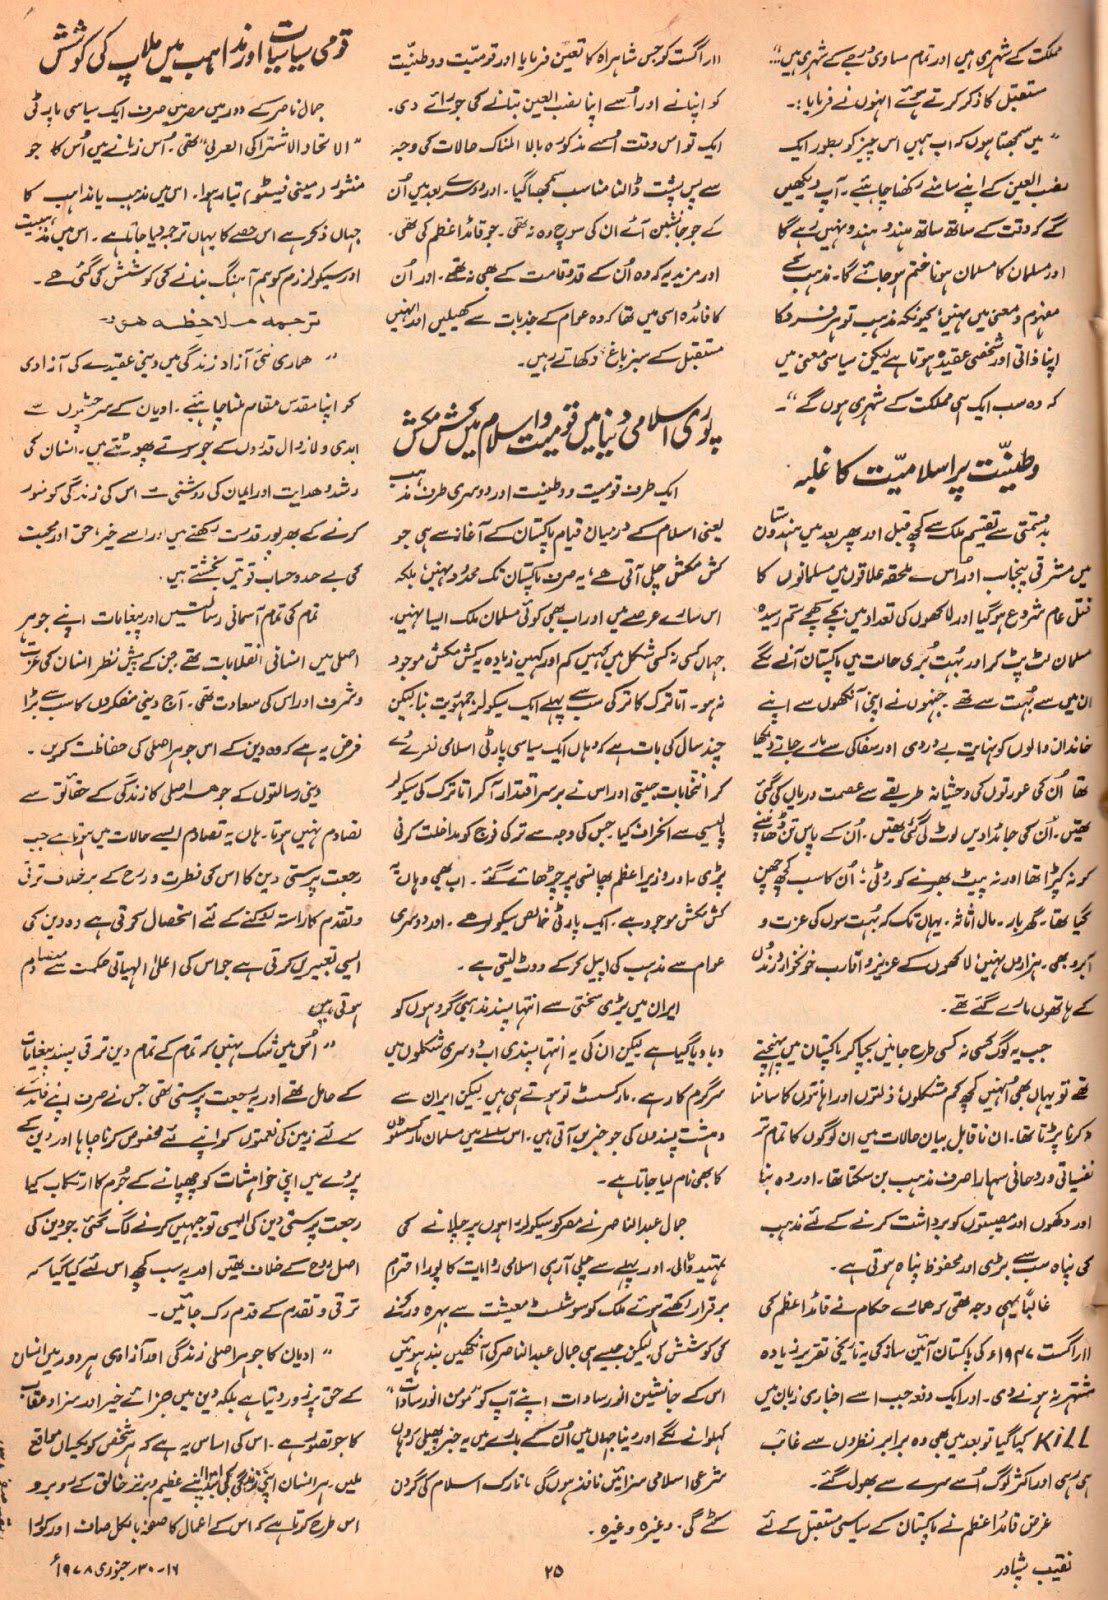 مملکت کے شہری ہیں اور تمام مساوی درجے کے شہری ہیں..."
مستقبل کا ذکر کرتے ہوئے انہوں نے فرمایا :۔
"میں سمجھتا ہوں کہ اب ہمیں اس چیز کو بطور ایک
نصب العین کے اپنے سامنے رکھنا چاہئیے۔ آپ دیکھیں
گے کہ وقت کے ساتھ ساتھ ہندو ہندو نہیں رہے گا
اور مسلمان کا مسلمان ہونا ختم ہو جائے گا۔ مذہب کے
مفہوم و معنی میں نہیں، کیونکہ مذہب تو ہر فرد کا
اپنا ذاتی اور شخصی عقیدہ ہوتا ہے لیکن سیاسی معنی میں
کہ وہ سب ایک ہی مملکت کے شہری ہوں گے"۔
وطنیّت پر اسلامیّت کا غلبہ
بدقسمتی سے تقسیم ملک سے کچھ قبل اور پھر بعد میں ہندوستان
میں مشرقی پنجاب اور اُس سے ملحقہ علاقوں میں مسلمانوں کا
قتل عام شروع ہو گیا اور لاکھوں کی تعداد میں بچے کھچے ستم رسیدہ
مسلمان لٹ پٹ کر اور بہت بُری حالت میں پاکستان آنے لگے
ان میں سے بہت سے تھے۔ جنہوں نے اپنی آنکھوں سے اپنے
خاندان والوں کو نہایت بے دردی اور سفاکی سے مارے جاتے دیکھا
تھا اُن کی عورتوں کی وحشیانہ طریقے سے عصمت دریاں کی گئی
تھیں۔ اُن کی جائدادیں لوٹ لی گئی تھیں۔ اُن کے پاس تن ڈھانپنے
کو نہ کپڑا تھا اور نہ پیٹ بھرنے کو روٹی؛ اُن کا سب کچھ چھن
گیا تھا۔ گھر بار۔ مال اثاثہ۔ یہاں تک کہ بہت سوں کی عزت و
آبرو بھی۔ ہزاروں نہیں؛ لاکھوں کے عزیز و اقارب خونخوار درندوں
کے ہاتھوں مارے گئے تھے۔
جب یہ لوگ کسی نہ کسی طرح جانیں بچا کر پاکستان میں پہنچتے
تھے تو یہاں بھی اُنہیں کچھ کم مشکلوں؛ ذلتوں اور اہانتوں کا سامنا
نہ کرنا پڑتا تھا۔ ان ناقابل بیان حالات میں ان لوگوں کا تمام تر
نفسیاتی و روحانی سہارا صرف مذہب بن سکتا تھا۔ اور وہ بنا
اور دکھوں اور مصیبتوں کو برداشت کرنے کے لئے مذہب
کی پناہ سب سے بڑی اور محفوظ پناہ ہوتی ہے۔
غالباً یہی وجہ تھی کہ ہمارے حکام نے قائد اعظم کی
۱۱ اگست ۱۹۴۷ء کی پاکستان آئین ساز کی یہ تاریخی تقریر زیادہ
مشتہر نہ ہونے دی۔ اور ایک دفعہ جب اسے اخباری زبان میں
KILL کیا گیا تو بعد میں بھی وہ برابر نظروں سے غائب
ہی رہی اور اکثر لوگ اُسے سرے سے بھول گئے۔
غرض قائد اعظم نے پاکستان کے سیاسی مستقبل کے لئے
۱۱ اگست کو جس شاہراہ کا تعین فرمایا اور قومیّت و وطنیّت
کو اپنانے اور اُسے اپنا نصب العین بنانے کی جو رائے دی۔
ایک تو اس وقت اُسے مذکورہ بالا المناک حالات کی وجہ
سے پس پشت ڈالنا مناسب سمجھا گیا۔ اور دوسرے بعد میں اُن
کے جو جانشین آئے اُن کی سوچ وہ نہ تھی۔ جو قائد اعظم کی تھی۔
اور مزید یہ کہ وہ اُن کے قد و قامت کے بھی نہ تھے۔ اور اُن
کا فائدہ اسی میں تھا کہ وہ عوام کے جذبات سے کھیلیں اور انہیں
مستقبل کے سبز باغ دکھاتے رہیں۔
پوری اسلامی دنیا میں قومیت و اسلام میں کش مکش
ایک طرف قومیت و وطنیت اور دوسری طرف مذہب
یعنی اسلام کے درمیان قیام پاکستان کے آغاز سے ہی جو
کش مکش چل آتی ہے؛ یہ صرف پاکستان تک محدود نہیں؛ بلکہ
اس سارے عرصے میں اور اب بھی کوئی مسلمان ملک ایسا نہیں۔
جہاں کسی نہ کسی شکل میں کہیں کم اور کہیں زیادہ یہ کش مکش موجود
نہ ہو۔ اتا ترک کا ترکی سب سے پہلے ایک سیکولر جمہوریت بنا لیکن
چند سال کی بات ہے کہ وہاں ایک سیاسی پارٹی اسلامی نعرے دے
کر انتخابات جیتی اور اس نے برسر اقتدار آ کر اتا ترک کی سیکولر
پالیسی سے انحراف کیا جس کی وجہ سے ترکی فوج کو مداخلت کرنی
پڑی۔ اور وزیر اعظم پھانسی پر چڑھائے گئے۔ اب بھی وہاں یہ
کش مکش موجود ہے۔ ایک پارٹی خالص سیکولر ہے۔ اور دوسری
عوام سے مذہب کی اپیل کر کے ووٹ لیتی ہے۔
ایران میں بڑی سختی سے انتہا پسند مذہبی گروہوں کو
دبا دیا گیا ہے لیکن ان کی یہ انتہا پسندی اب دوسری شکلوں میں
سرگرم کار ہے۔ مارکسسٹ تو ہوتے ہی ہیں لیکن ایران سے
دہشت پسندوں کی جو خبریں آتی ہیں۔ اس سلسلے میں مسلمان مارکسسٹوں
کا بھی نام لیا جاتا ہے۔
جمال عبدالناصر نے مصر کو سیکولر راہوں پر چلانے کی
تمہید ڈالی۔ اور پہلے سے چلی آ رہی اسلامی روایات کا پورا احترام
برقرار رکھتے ہوئے ملک کو سوشلسٹ معیشت سے بہرہ ور کرنے
کی کوشش کی لیکن جیسے ہی جمال عبدالناصر کی آنکھیں بند ہوئیں
اس کے جانشین انور سادات اپنے آپ کو "مومن انور سادات"
کہلوانے لگے اور دنیا جہاں میں اُن کے بارے میں یہ خبر پھیلی کہ وہاں
شرعی اسلامی سزائیں نافذ ہوں گی یا تارک اسلام کی گردن
کٹے گی۔ وغیرہ وغیرہ۔
قومی سیاسیات اور مذاہب میں ملاپ کی کوشش
جمال ناصر کے دور میں مصر میں صرف ایک سیاسی پارٹی
"الاتحاد الاشتراکی العربی" تھی۔ اُس زمانے میں اُس کا جو
منشور (مینی فیسٹو) تیار ہوا۔ اس میں مذہب یا مذاہب کا
جہاں ذکر ہے اس حصے کا یہاں ترجمہ دیا جاتا ہے۔ اس میں مذہبیت
اور سیکولرزم کو ہم آہنگ بنانے کی کوشش کی گئی ہے۔
ترجمہ ملاحظہ ہو:۔
"ہماری نئی آزاد زندگی میں دینی عقیدے کی آزادی
کو اپنا مقدس مقام ملنا چاہئیے۔ ادیان کے سرچشموں سے
ابدی و لازوال قدروں کے جو سوتے پھوٹتے ہیں۔ انسان کی
رشد و ہدایت اور ایمان کی روشنی سے اس کی زندگی کو منور
کرنے کے بھرپور قدرت رکھتے ہیں اور اسے خیر، حق اور محبت
کی بے حد و حساب قوتیں بخشتے ہیں۔
تمام کی تمام آسمانی رسالتیں اور پیغامات اپنے جوہر
اصلی میں انسانی انقلابات تھے جن کے پیش نظر انسان کی عزت
و شرف اور اس کی سعادت تھی۔ آج دینی مفکروں کا سب سے بڑا
فرض یہ ہے کہ وہ دین کے اس جوہر اصلی کی حفاظت کریں۔
دینی رسالتوں کے جوہر اصلی کا زندگی کے حقائق سے
تصادم نہیں ہوتا۔ ہاں یہ تصادم ایسے حالات میں ہوتا ہے جب
رجعت پرستی دین کا اس کی فطرت و روح کے برخلاف ترقی
و تقدم کا راستہ روکنے کے لئے استحصال کرتی ہے وہ دین کی
ایسی تعبیریں کرتی ہے جو اس کی اعلیٰ الٰہیاتی حکمت سے متصادم
ہوتی ہیں
"اس میں شک نہیں کہ تمام کے تمام دین ترقی پسند پیغامات
کے حامل تھے اور یہ رجعت پرستی تھی جس نے صرف اپنے فائدے
کے لئے زمین کی نعمتوں کو اپنے لئے مخصوص کرنا چاہا اور دین کے
پردے میں اپنی خواہشات کو چھپانے کے جرم کا ارتکاب کیا
رجعت پرستی دین کی ایسی توجیہیں کرنے لگ گئی جو دین کی
اصل روح کے خلاف تھیں اور یہ سب کچھ اس لئے کیا گیا کہ
ترقی و تقدم کے قدم رک جائیں۔
"ادیان کا جوہر اصلی زندگی اور آزادی ہر دور میں انسان
کے حق پر زور دیتا ہے بلکہ دین میں جزائے خیر اور سزا و عقاب
کا جو تصور ہے۔ اس کی اساس یہ ہے کہ ہر شخص کو یکساں مواقع
ملیں۔ ہر انسان اپنی زندگی کی ابتدا اپنے عظیم و برتر خالق کے روبرو
اس طرح کرتا ہے کہ اس کے اعمال کا صفحہ بالکل صاف اور کورا
نقیب پشاور
۲۵
۱۶-۳۰ جنوری ۱۹۷۸ء